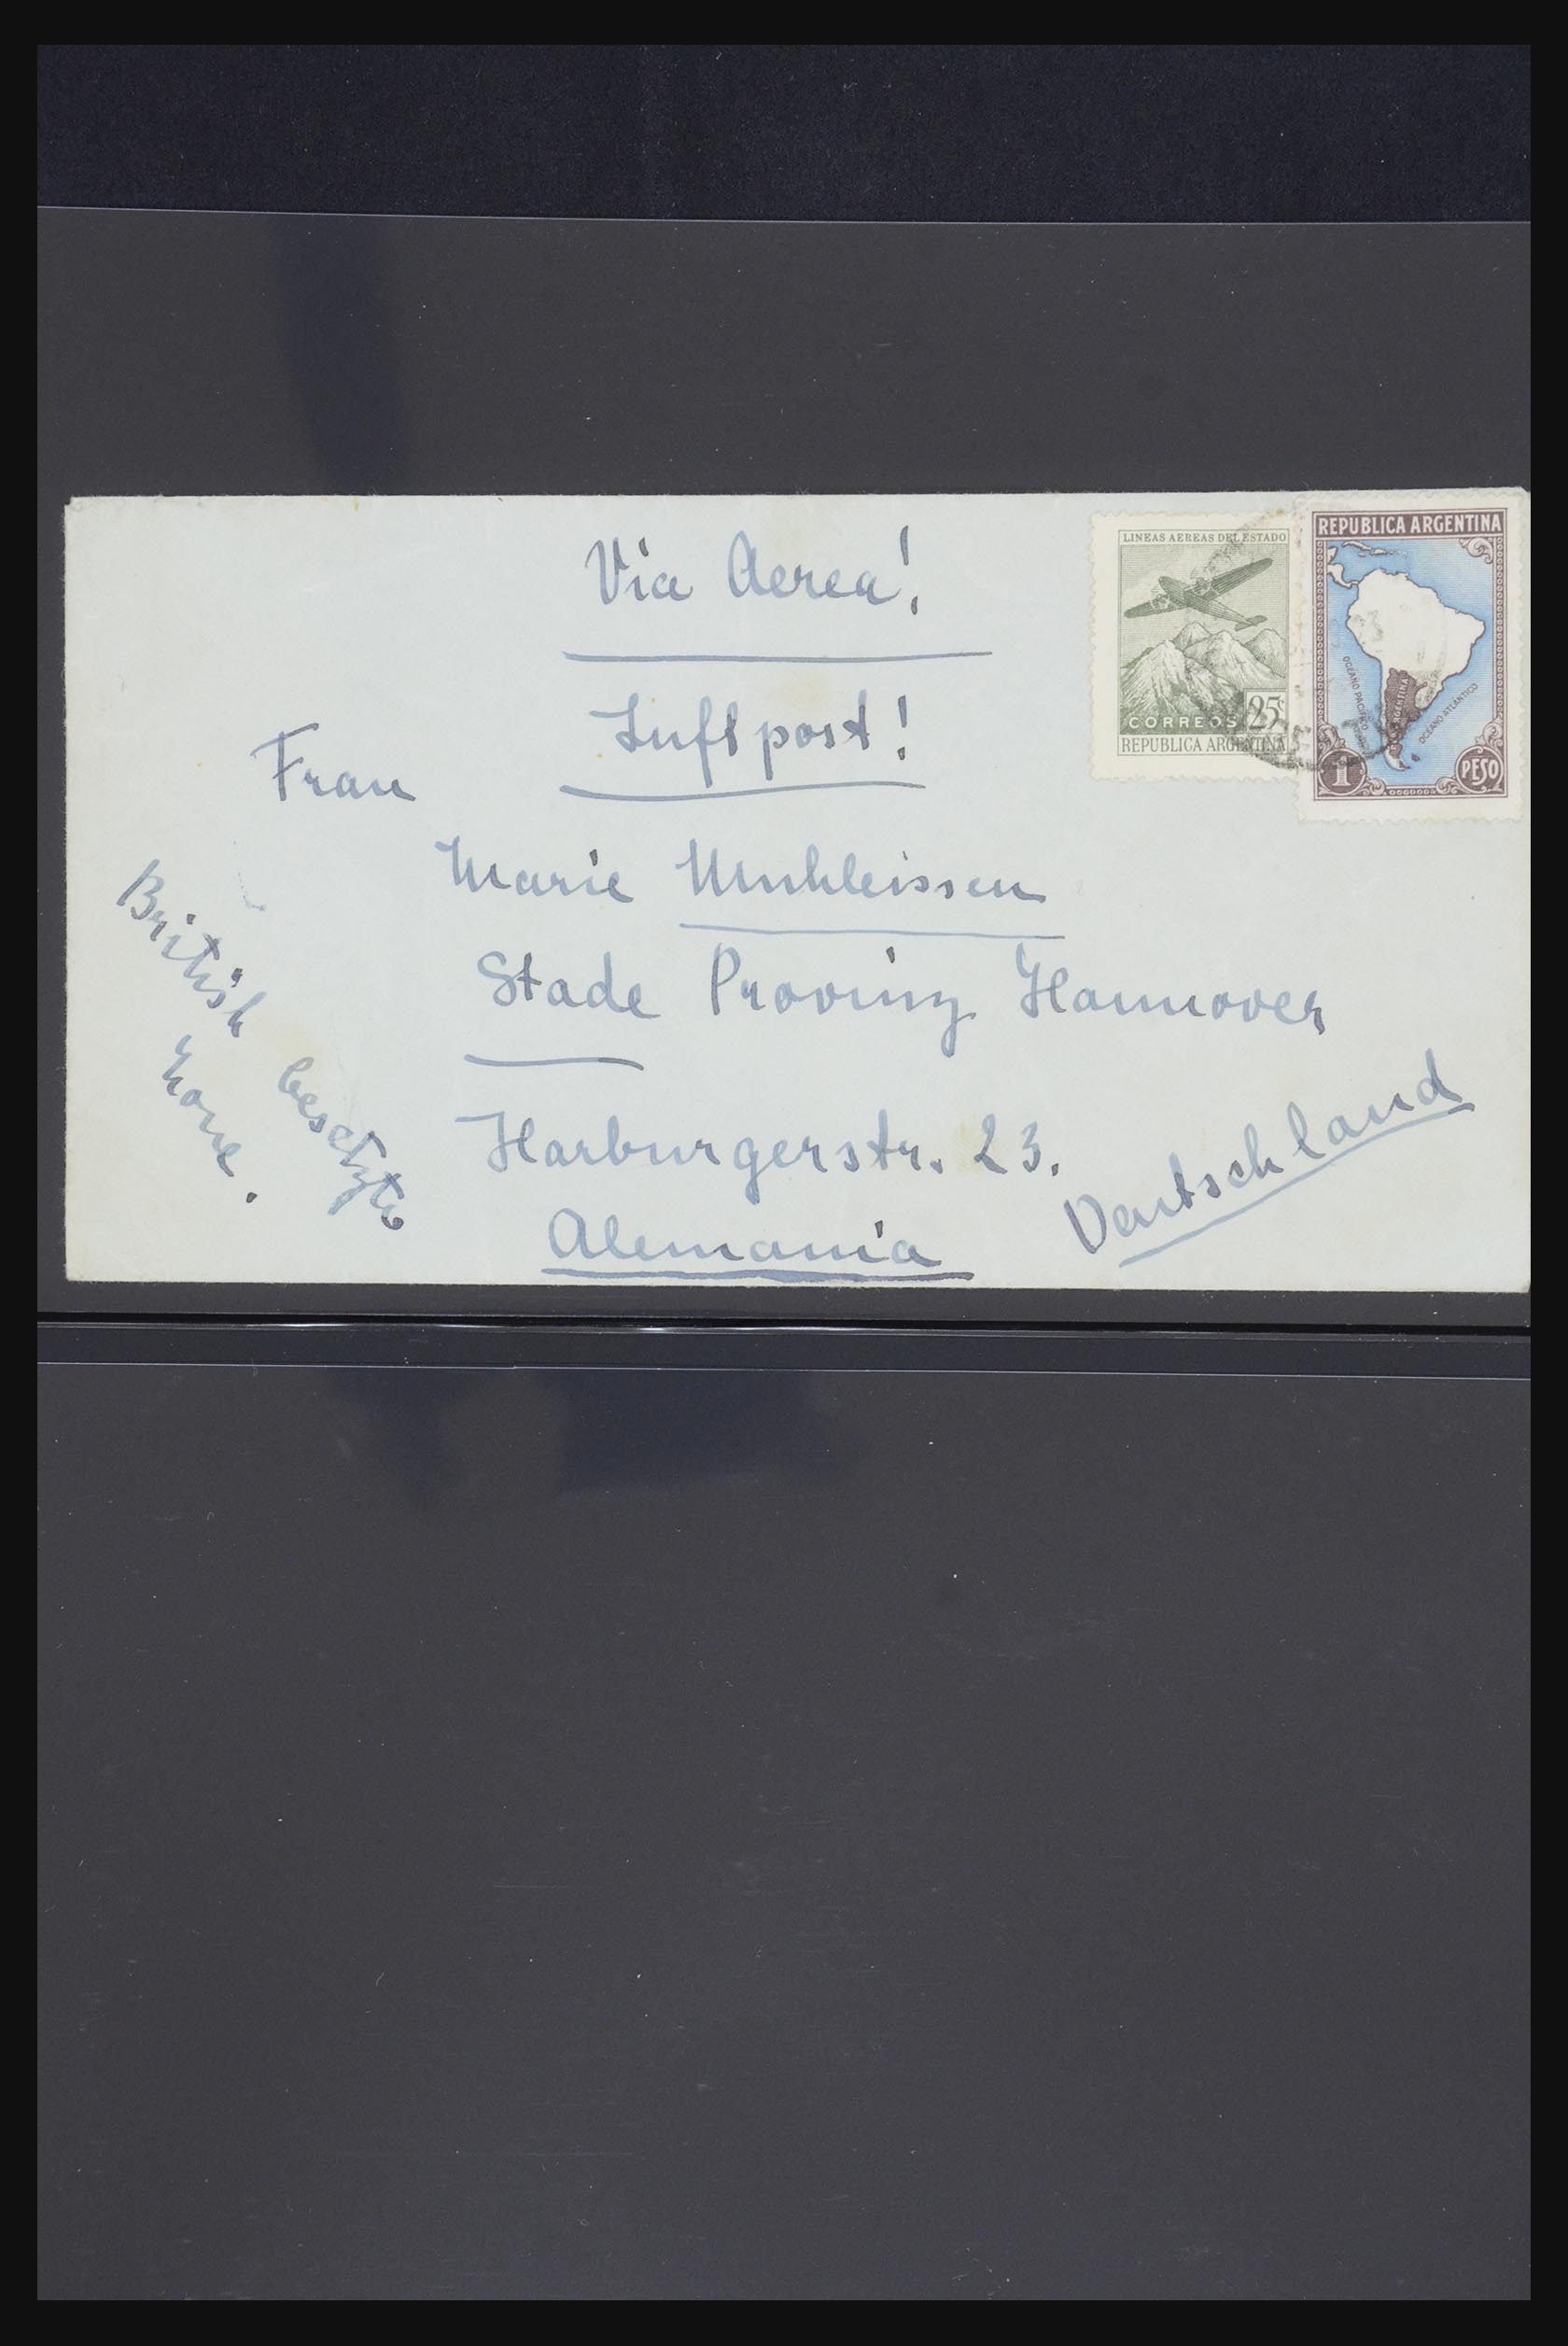 Via Aerea!
Luftpost!
Frau
Marie Muhleissen
Stade Provinz Hannover
Harburgerstr. 23.
Alemania
Deutschland
British besetzte
Zone.
LINEAS AEREAS DEL ESTADO
CORREOS 25c
REPUBLICA ARGENTINA
REPUBLICA ARGENTINA
OCEANO PACIFICO
ARGENTINA
OCEANO ATLÁNTICO
1 PESO